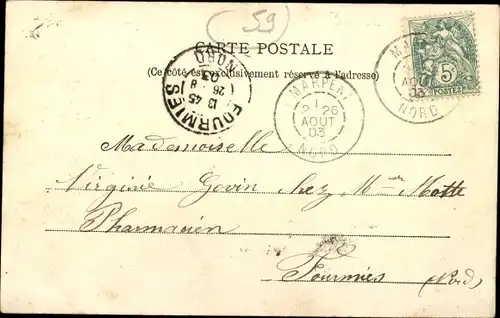 59
CARTE POSTALE
(Ce côté est exclusivement réservé à l'adresse)
FOURMIES
13 45
26 - 8
03
(NORD)
MARPENT
26
AOUT
03
NORD
AOUT
03
NORD
5c
POSTES
Mademoiselle
Virginie Govin chez Mme Motte
Pharmacien
Fourmies (Nord)